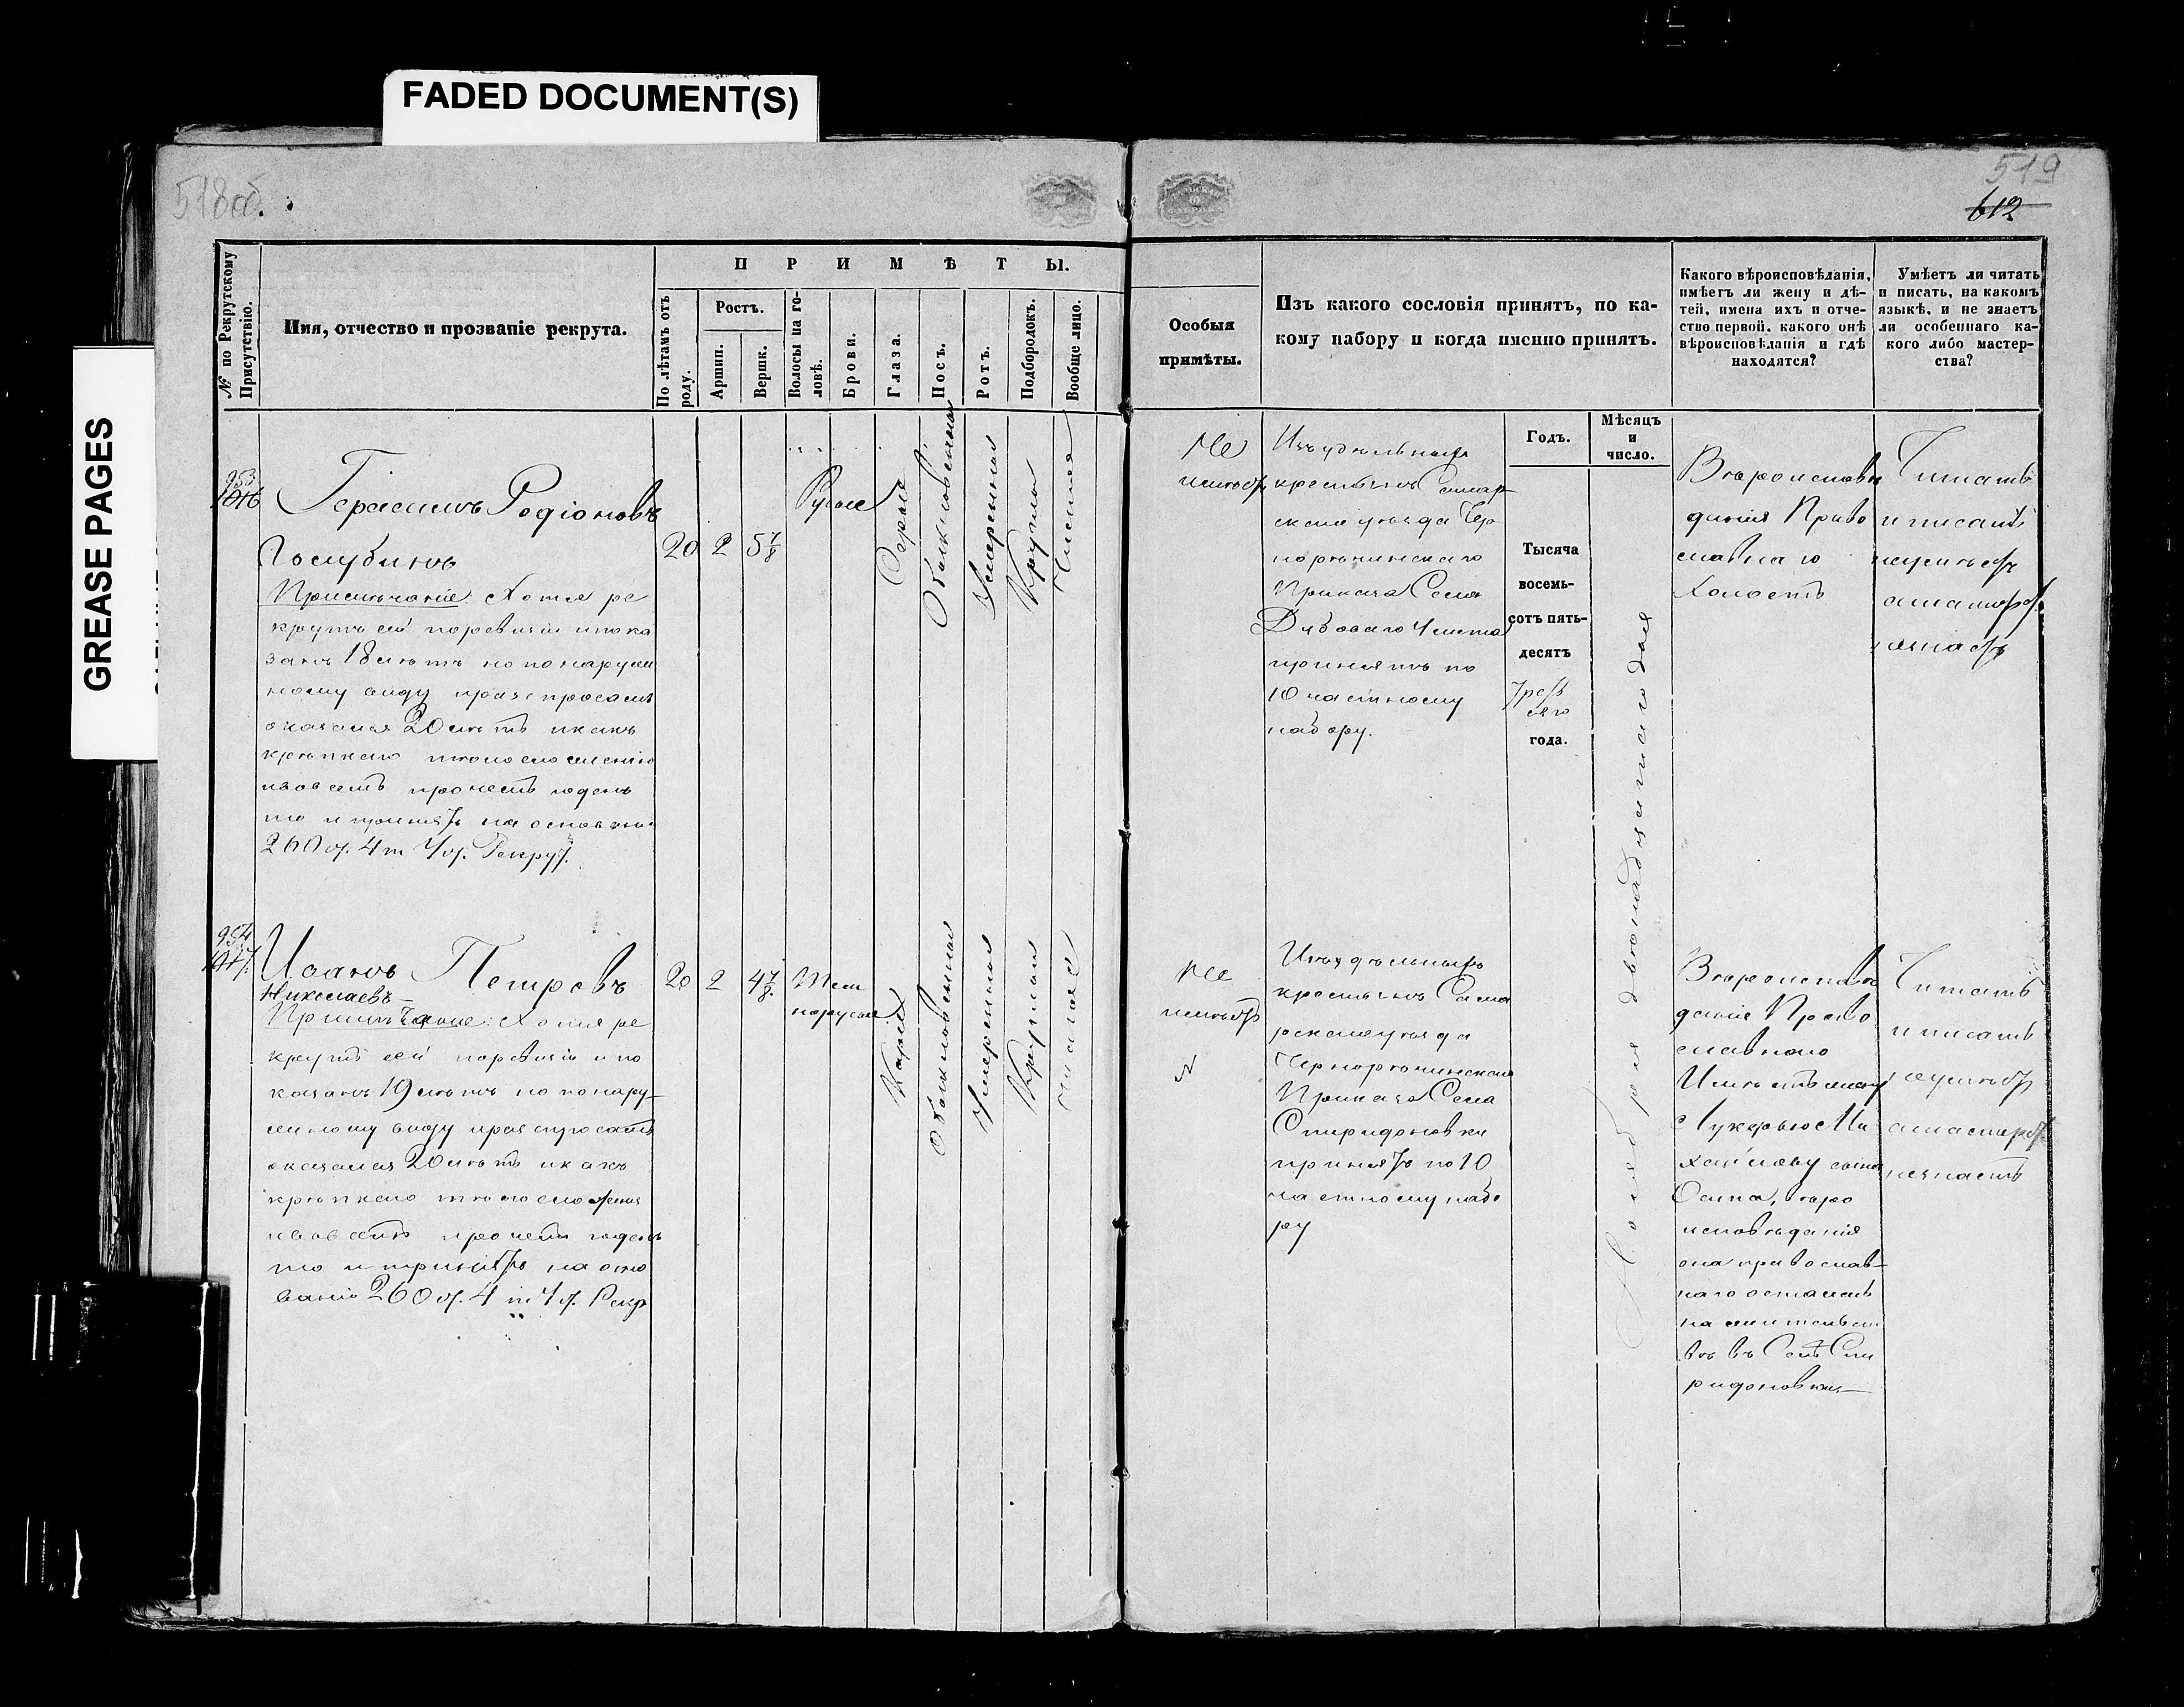 FADED DOCUMENT(S)
GREASE PAGES
518об.
519
612
№ по Рекрутскому Присутствію.
Имя, отчество и прозваніе рекрута.
ПРИМѢТЫ.
По лѣтамъ отъ роду.
Ростъ.
Аршин.
Вершк.
Волосы на головѣ.
Брови.
Глаза.
Носъ.
Ротъ.
Подбородокъ.
Вообще лицо.
Особыя
примѣты.
Изъ какого сословія принятъ, по ка-
кому набору и когда именно принятъ.
Какого вѣроисповѣданія,
имѣетъ ли жену и дѣ-
тей, имена ихъ и отче-
ство первой, какого онѣ
вѣроисповѣданія и гдѣ
находятся?
Умѣетъ ли читать
и писать, на какомъ
языкѣ, и не знаетъ
ли особеннаго ка-
кого либо мастер-
ства?
Годъ.
Мѣсяцъ
и
число.
953
1016
Герасимъ Родіоновъ
Голубинъ
Примѣчаніе: Хотя ре
крутъ сей по ревизіи и пока
занъ 18 лѣтъ но по наруж
ному виду и разспросамъ
оказался 20 лѣтъ и какъ
крѣпкаго тѣлосложенія
и во всемъ прочемъ годенъ
то и принятъ на основані
260 ст. 4 т. Уст. Рекрут.
20
2
5 7/8
Русые
Серые
Обыкновенный
Умеренный
Круглый
Чистое
Не
имѣетъ
Изъ удѣльныхъ
крестьянъ Самар
скаго уѣзда Чер
норѣчинскаго
Приказа Села
Дубоваго Умета
принятъ по
10 частному
набору.
Тысяча
восемь-
сотъ пять-
десятъ
треть
яго
года.
Ноября двенадцатого дня
Вѣроисповѣ
данія Право
славнаго
Холостъ
Читать
и писать
неумѣетъ
а мастерст.
незнаетъ
954
1017.
Иванъ Петровъ
Николаевъ
Примѣчаніе: Хотя ре
крутъ сей по ревизіи и по
казанъ 19 лѣтъ но по нару-
жному виду и разспросамъ
оказался 20 лѣтъ и какъ
крѣпкаго тѣлосложенія
и во всемъ прочемъ годенъ
то и принятъ на осно
ваніи 260 ст. 4 т. Уст. Рекр
20
2
4 7/8.
Тем
норусые
Каріе
Обыкновенный
Умеренный
Круглый
Чистое
Не
имѣетъ
Изъ удѣльныхъ
крестьянъ Сама
рскаго уѣзда
Чернорѣчинскаго
Приказа Села
Спиридоновки
принятъ по 10
частному набо
ру
Вѣроисповѣ
данія Право
славнаго
Имѣетъ жену
Лукерью Ми
хайлову сына
Осипа, вѣро
исповѣданія
она православ-
наго остаются
на жительст
вѣ въ Селѣ Спи
ридоновки
Читать
и писать
неумѣетъ
а мастерст.
незнаетъ